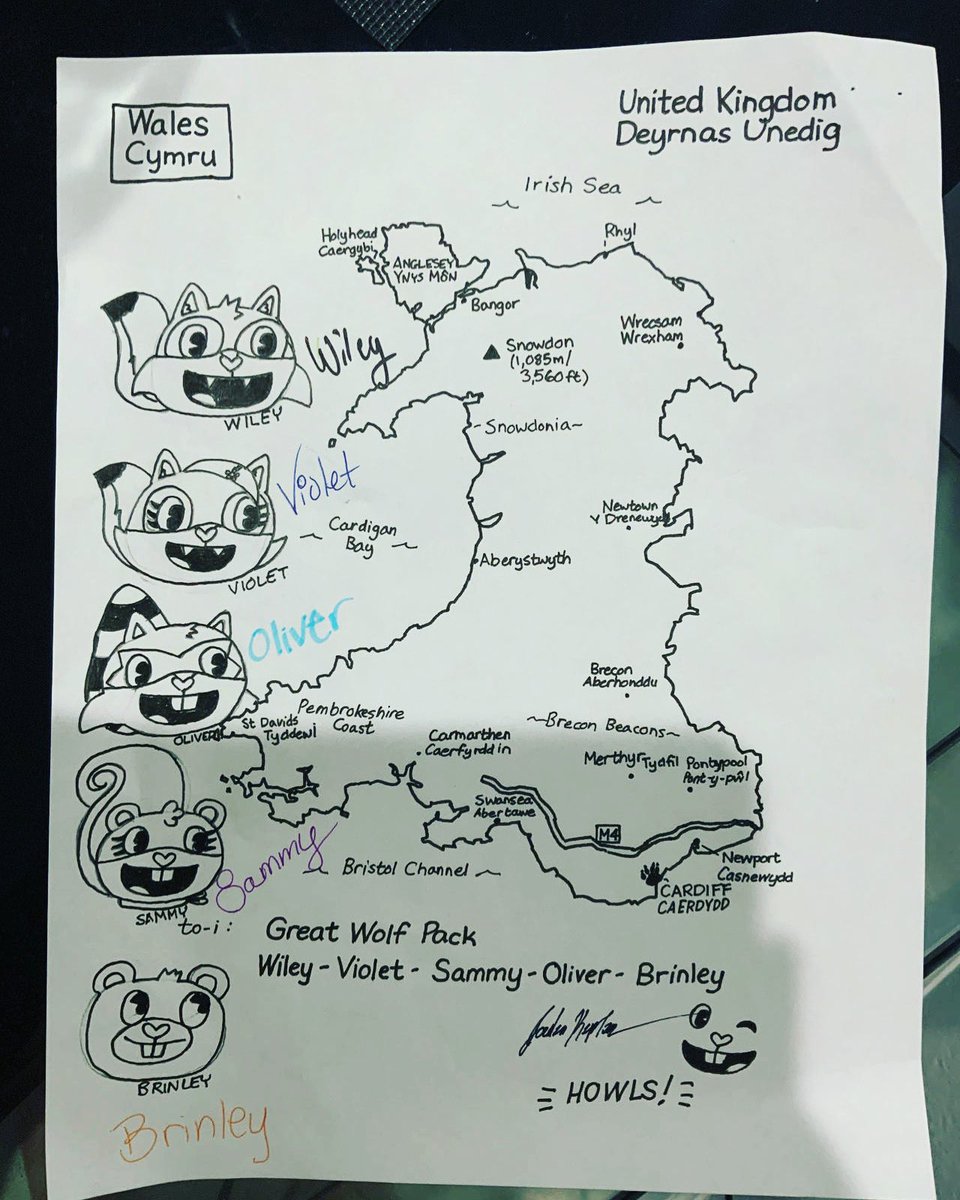 Wales
Cymru
United Kingdom
Deyrnas Unedig
Irish Sea
Rhyl
Holyhead
Caergybi
ANGLESEY
YNYS MÔN
Bangor
Wrecsam
Wrexham
Snowdon
(1,085m/
3,560ft)
Wiley
WILEY
~Snowdonia~
Violet
VIOLET
Cardigan
Bay
Newtown
Y Drenewydd
Aberystwyth
Oliver
OLIVER
Brecon
Aberhonddu
St Davids
Tyddewi
Pembrokeshire
Coast
~Brecon Beacons~
Carmarthen
Caerfyrddin
Merthyr Tydfil
Pontypool
Pont-y-pŵl
Swansea
Abertawe
M4
Sammy
SAMMY
Bristol Channel
Newport
Casnewydd
CARDIFF
CAERDYDD
to-i: Great Wolf Pack
Wiley - Violet - Sammy - Oliver - Brinley
BRINLEY
HOWLS!
Brinley